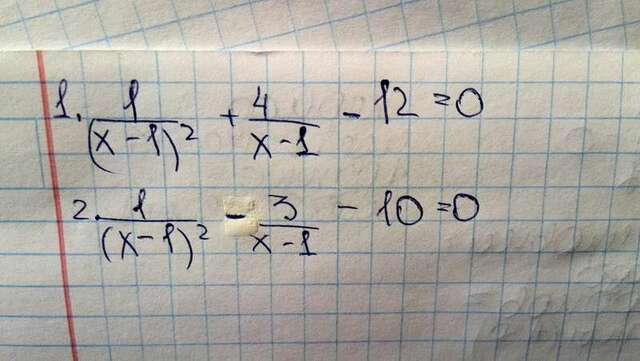 1. 1/(x-1)² + 4/x-1 - 12 = 0
2. 1/(x-1)² - 3/x-1 - 10 = 0